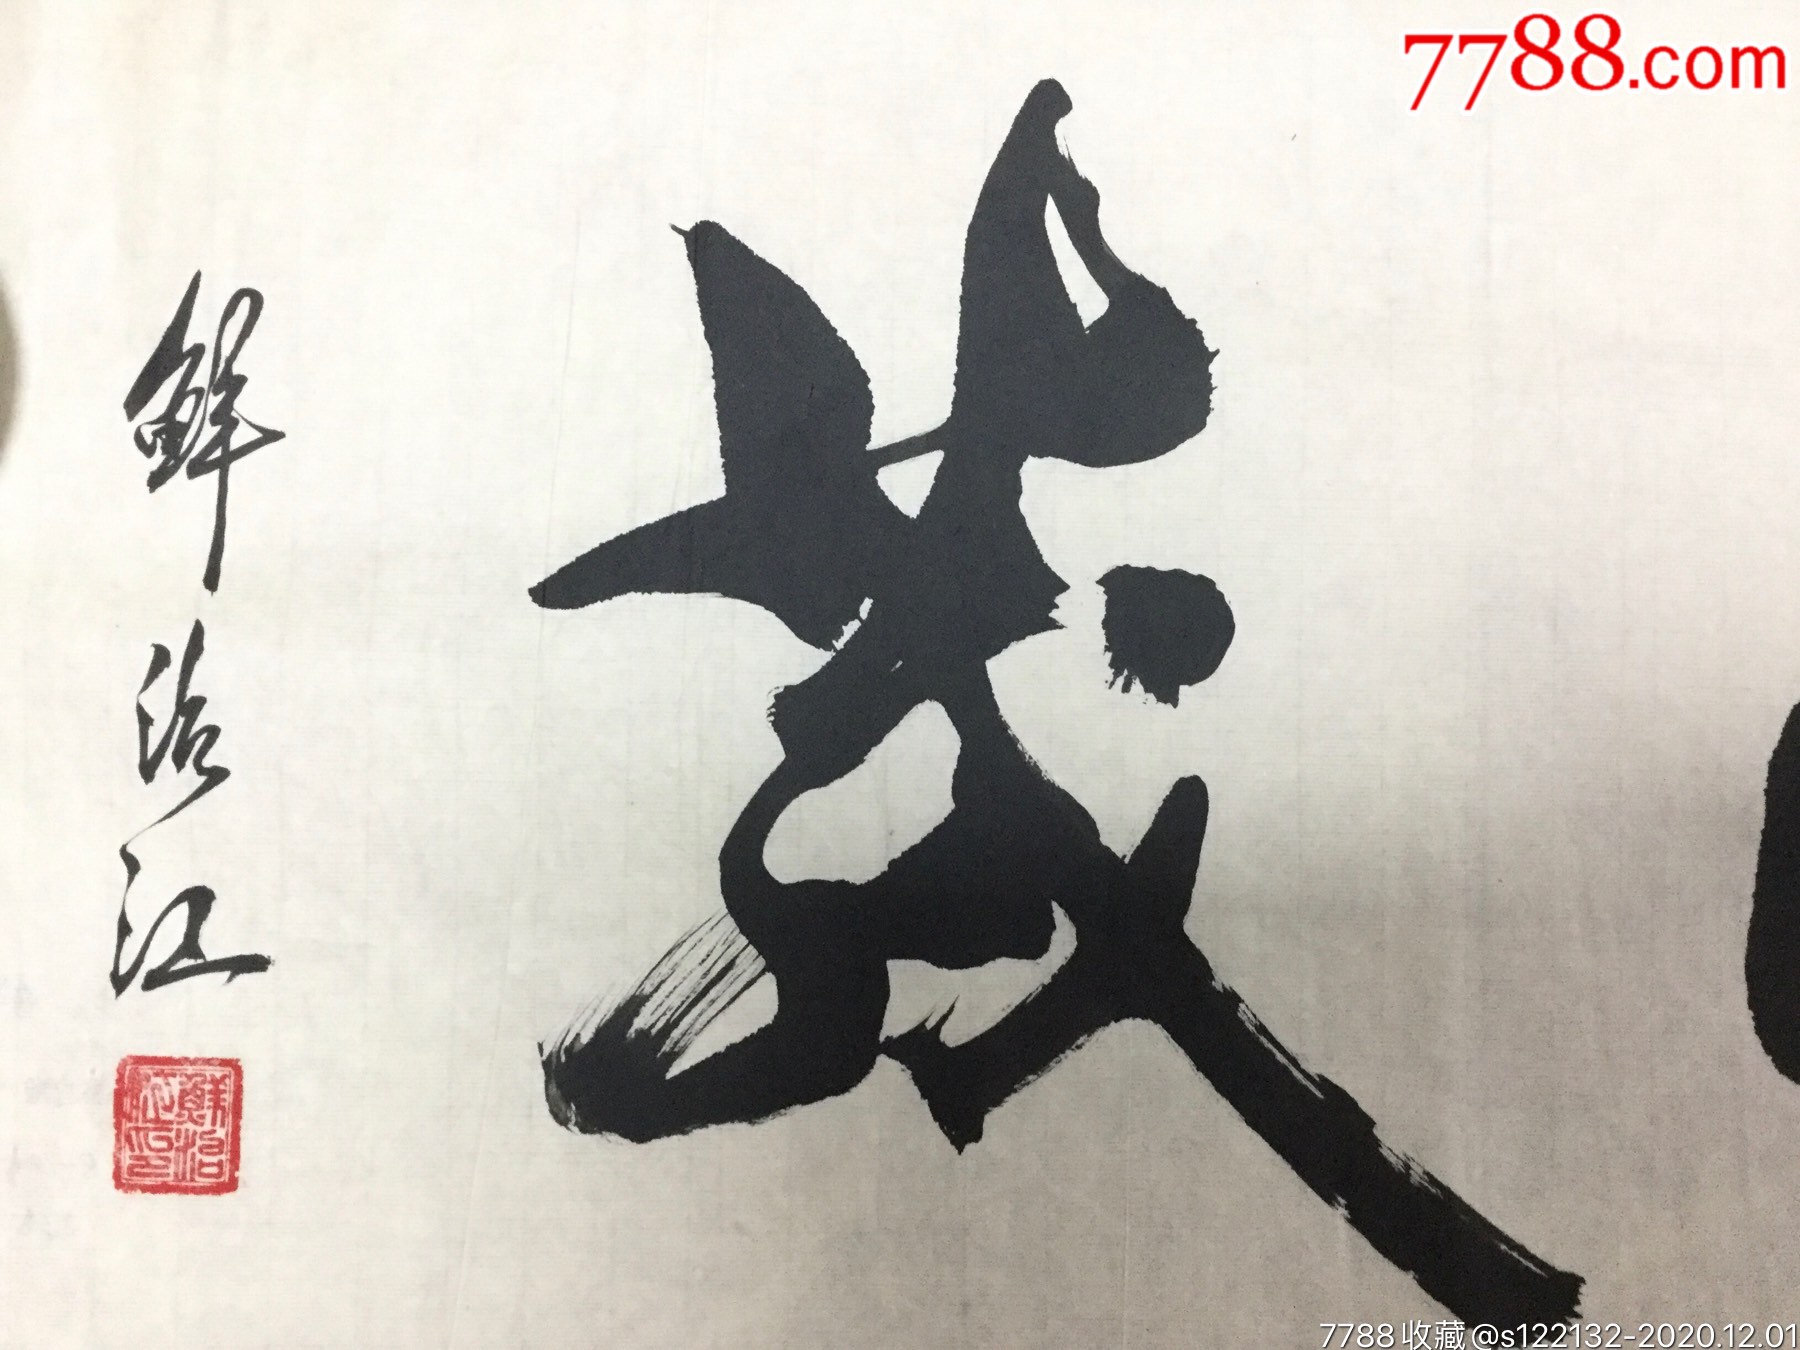 7788.com
鲜治江
鮮治
江印
7788收藏@s122132-2020.12.01